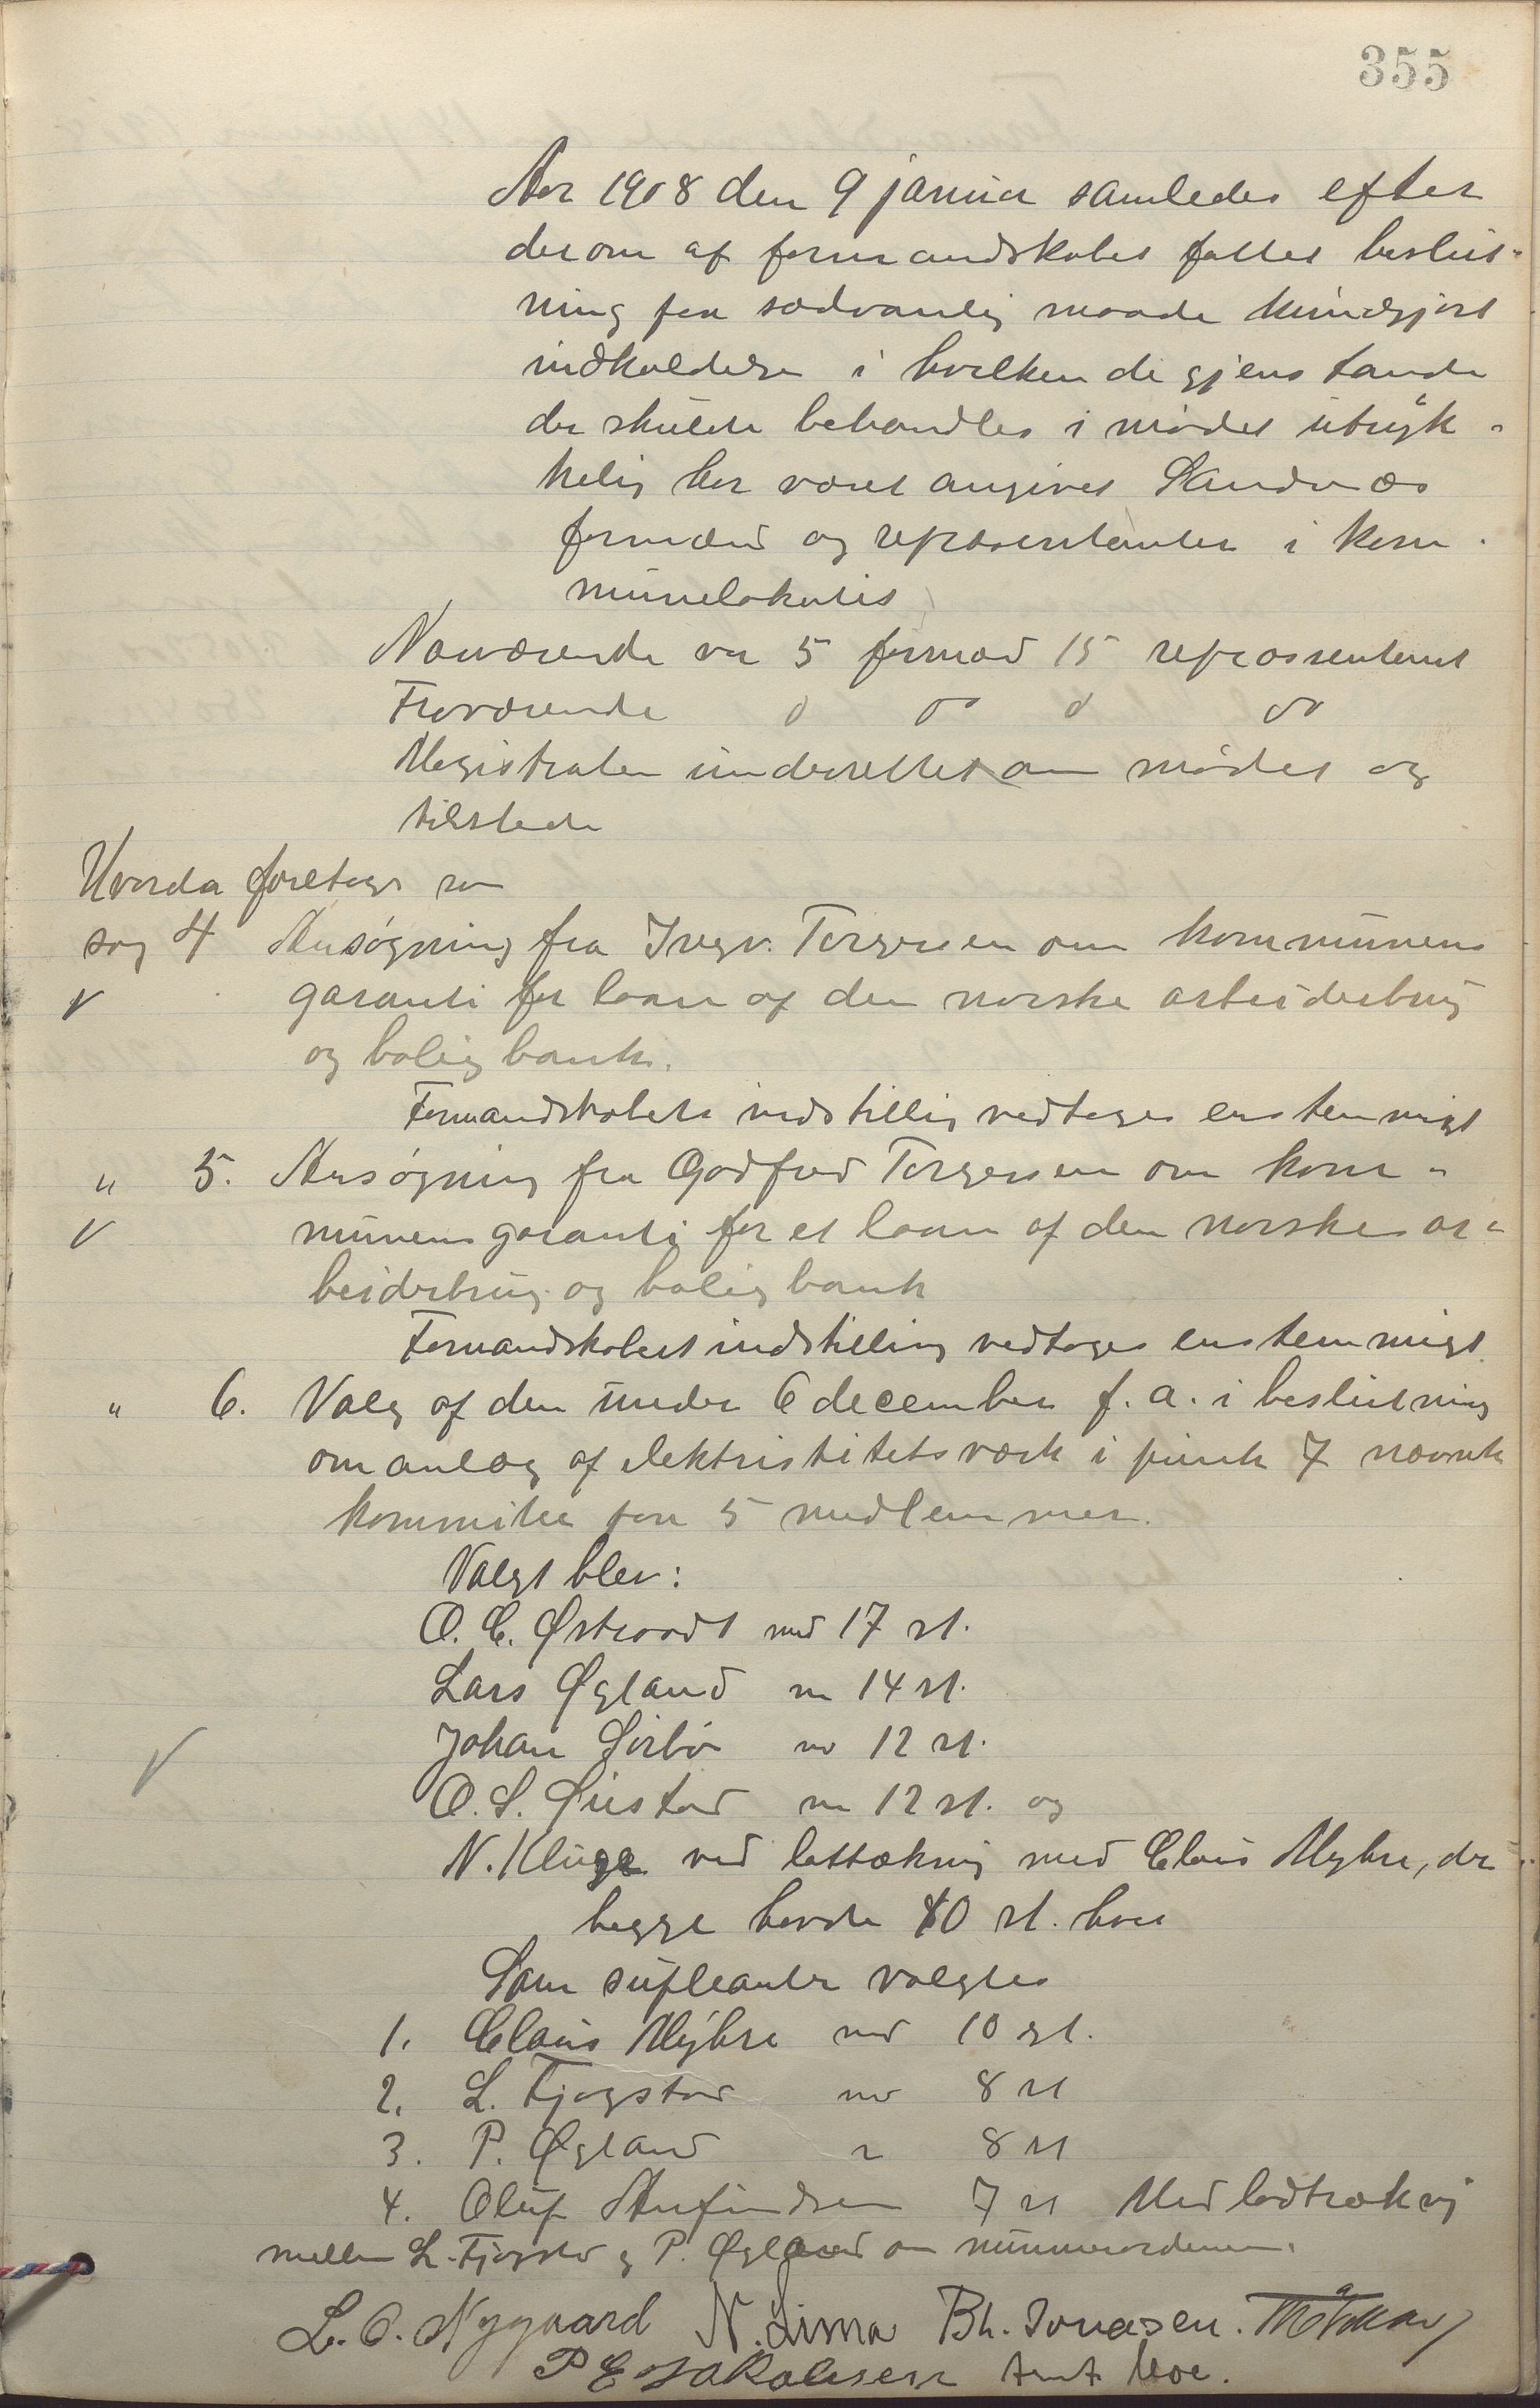 355
Aar 1908 den 9 januar samledes efter
derom af formandskabet fattet beslut-
ning paa sædvanlig maade kundgjort
indkaldelse i hvilken de gjenstande
der skulde behandles i mødet utryk-
kelig har været angivet Sandnæs
formænd og repræsentanter i kom-
munelokalet
Nærværende var 5 formænd 15 repræssentant
Fraværende 0 do 0 do
Magistraten underrettet om mødet og
tilstede
Hvorda foretages som
sag 4 Ansøgning fra Ingv. Torgersen om kommunens
garanti for laan af den norske arbeiderbrug
og boligbank.
Formandskabets indstillig vedtages enstemmigt
" 5. Ansøgning fra Godfred Torgersen om kom-
munens garanti for et laan af den norske ar-
beiderbrug og boligbank
Formandskabets indstilling vedtages enstemmigt
" 6. Valg af den under 6 december f. a. i beslutning
om anlæg af elektristitetsværk i punk 7 nævnte
kommitee paa 5 medlemmer.
Valgt blev:
O. C. Østraadt med 17 st.
Lars Øgland m 14 st.
Johan Sørbø m 12 st.
O. S. Qustad m 12 st. og
N. Kluge ved lottrækning med Claus Myhre, der
begge havde 10 st. hver
Som supleanter valgtes
1. Claus Myhre med 10 st.
2. L. Fjogstad md 8 st
3. P. Øgland " 8 st
4. Oluf Aufindsen 7 st Ved lodtrækning
mellem L. Fjogstad og P. Øgland om nummerordenen.
L. O. Nygaard N. Lima Bh. Jonasen.
P E Jakobsen Arnt Moe.